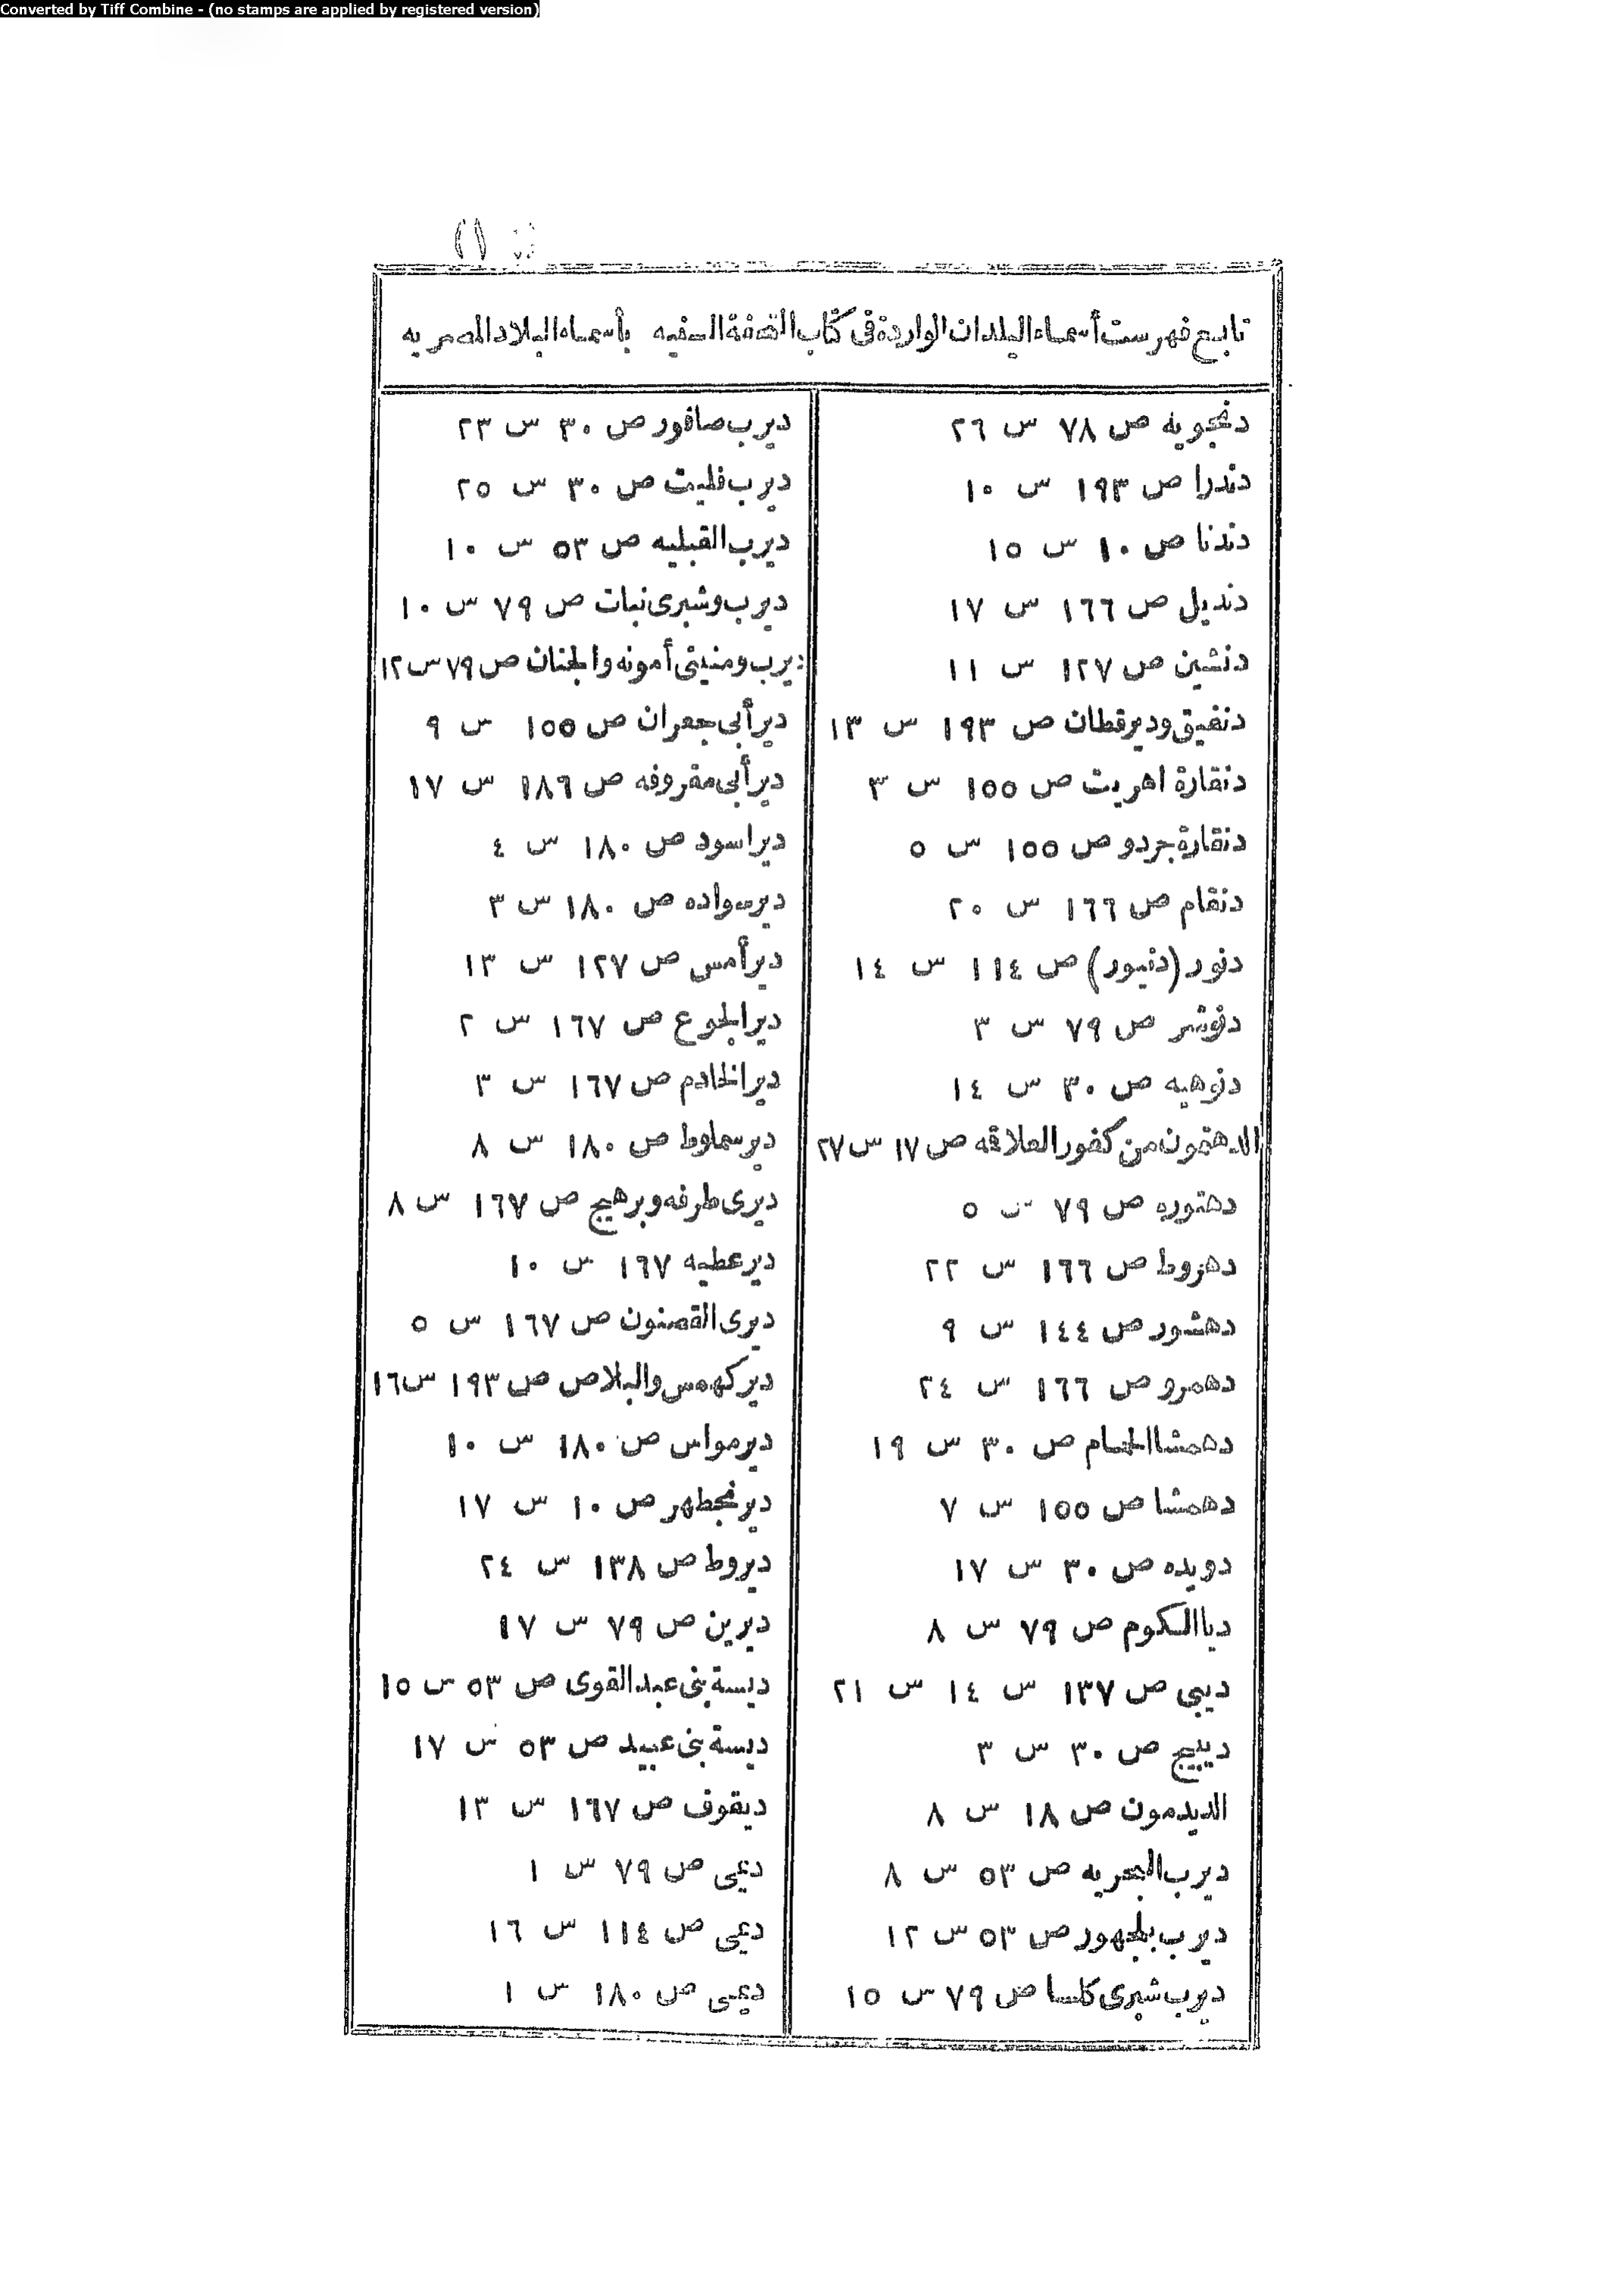 Converted by Tiff Combine - (no stamps are applied by registered version)
تابع فهرست أسماء البلدان الواردة فى كتاب التحفة السنيه بأسماء البلاد المصريه
دنجويه ص ٧٨ س ٢٦
دندرا ص ١٩٣ س ١٠
دندنا ص ١٠ س ١٥
دنديل ص ١٦٦ س ١٧
دنشين ص ١٢٧ س ١١
دنفيق وديرقطان ص ١٩٣ س ١٣
دنقارة اهريت ص ١٥٥ س ٣
دنقارة جردو ص ١٥٥ س ٥
دنقام ص ١٦٦ س ٢٠
دنور (دنيور) ص ١١٤ س ١٤
دنوشر ص ٧٩ س ٣
دنوهيه ص ٣٠ س ١٤
الدهتمون من كفور العلاقه ص ١٧ س ٢٧
دهتوره ص ٧٩ س ٥
دهروط ص ١٦٦ س ٢٢
دهشور ص ١٤٤ س ٩
دهمرو ص ١٦٦ س ٢٤
دهمشا الحمام ص ٣٠ س ١٩
دهمشا ص ١٥٥ س ٧
دويده ص ٣٠ س ١٧
ديا الكوم ص ٧٩ س ٨
ديبى ص ١٣٧ س ١٤ س ٢١
ديبيج ص ٣٠ س ٣
الديدمون ص ١٨ س ٨
ديرب البحريه ص ٥٣ س ٨
ديرب بلجهور ص ٥٣ س ١٢
ديرب شبرى كلسا ص ٧٩ س ١٥
ديرب صافور ص ٣٠ س ٢٣
ديرب فليت ص ٣٠ س ٢٥
ديرب القبليه ص ٥٣ س ١٠
ديرب وشبرى نبات ص ٧٩ س ١٠
ديرب ومنيتى أمونه والجنان ص ٧٩ س ١٢
دير أبى جعران ص ١٥٥ س ٩
دير أبى مقروفه ص ١٨٦ س ١٧
دير اسود ص ١٨٠ س ٤
دير سواده ص ١٨٠ س ٣
دير أمس ص ١٢٧ س ١٣
دير الجوع ص ١٦٧ س ٢
دير الخادم ص ١٦٧ س ٣
دير سملوط ص ١٨٠ س ٨
ديرى طرفه وبرهيج ص ١٦٧ س ٨
دير عطيه ١٦٧ س ١٠
ديرى القصنون ص ١٦٧ س ٥
دير كهمس والبلاص ص ١٩٣ س ١٦
دير مواس ص ١٨٠ س ١٠
دير نجطهر ص ١٠ س ١٧
ديروط ص ١٣٨ س ٢٤
ديرين ص ٧٩ س ١٧
ديسة بنى عبد القوى ص ٥٣ س ١٥
ديسة بنى عبيد ص ٥٣ س ١٧
ديقوف ص ١٦٧ س ١٣
ديمى ص ٧٩ س ١
ديمى ص ١١٤ س ١٦
ديمى ص ١٨٠ س ١